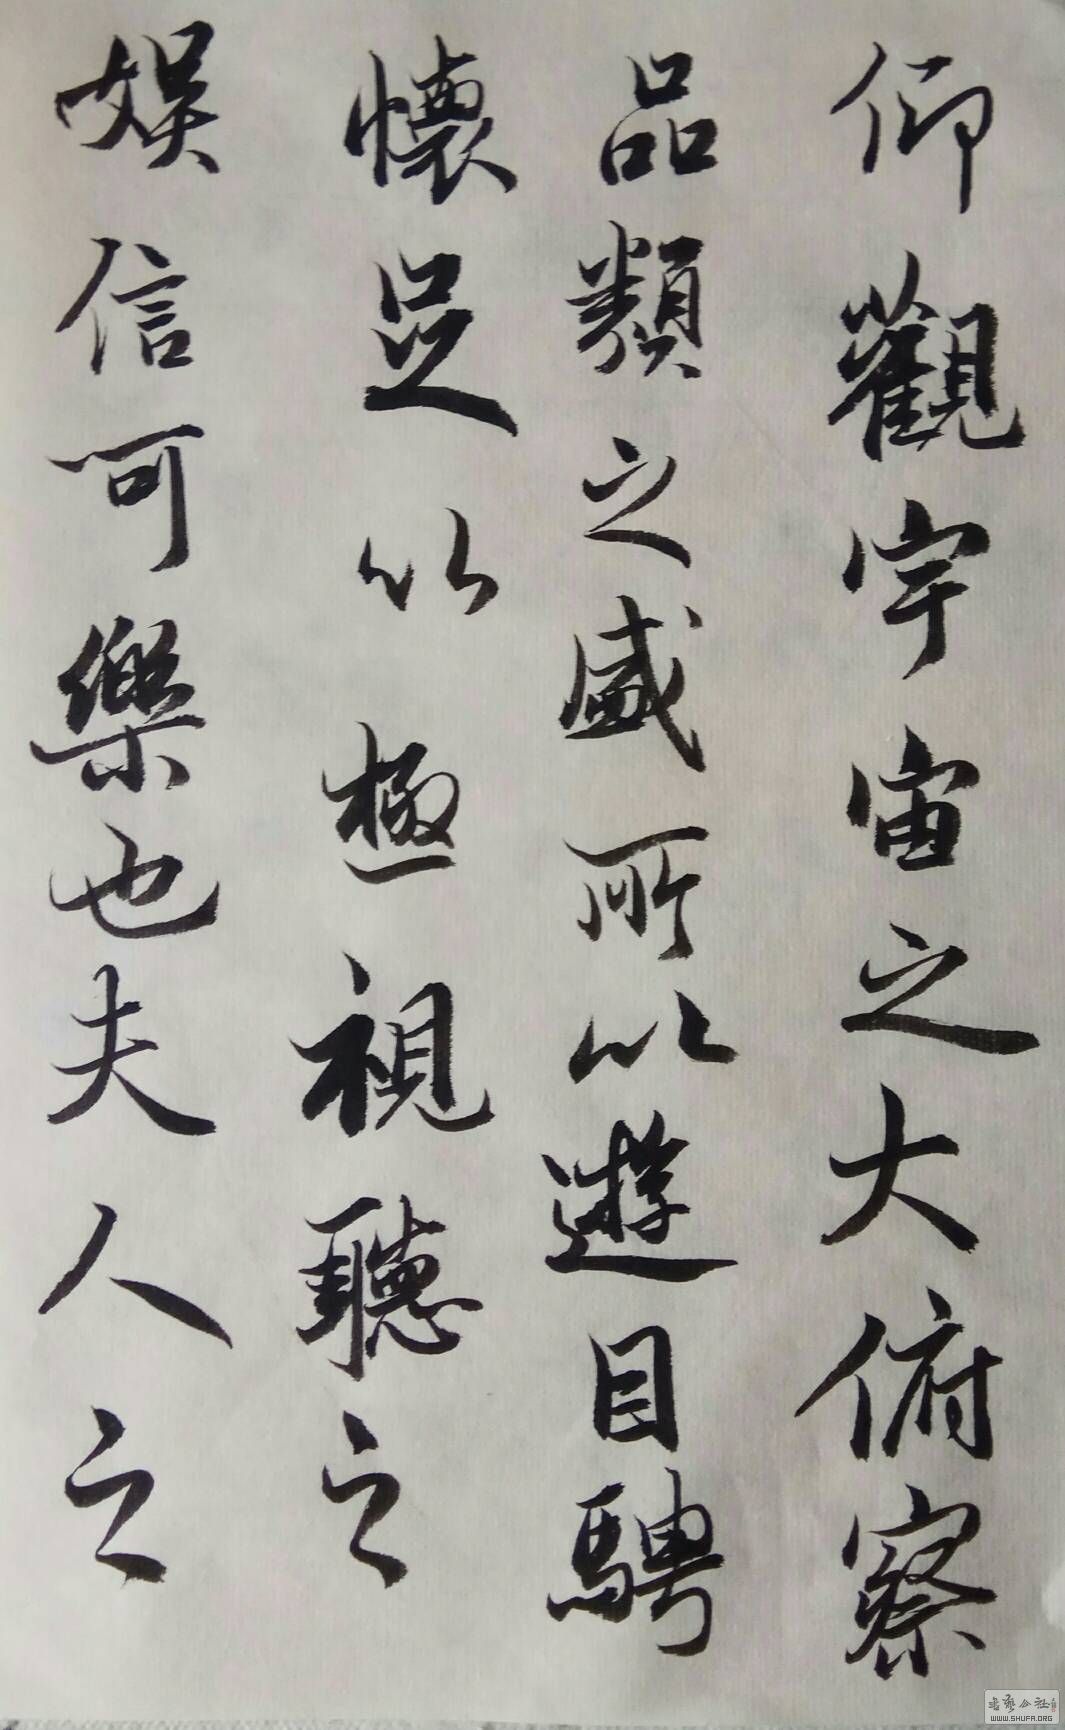 仰觀宇宙之大俯察
品類之盛所以遊目騁
懷足以極視聽之
娛信可樂也夫人之
書藝公社
WWW.SHUFA.ORG